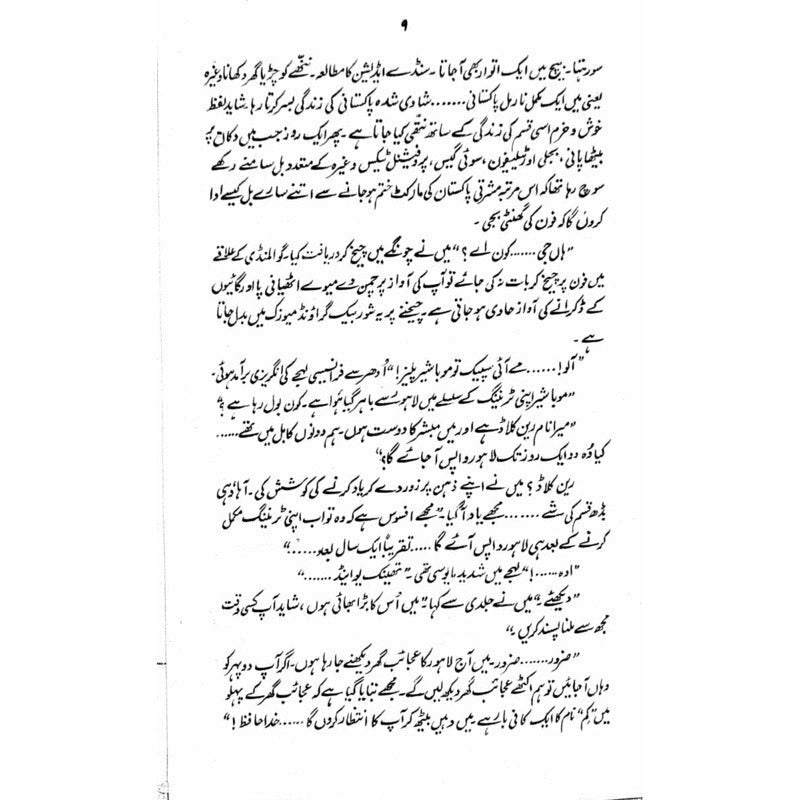 ۹
سو رہتا۔ بیچ میں ایک اتوار بھی آ جاتا۔ سنڈے ایڈیشن کا مطالعہ۔ ننھے کو چڑیا گھر دکھانا وغیرہ
یعنی میں ایک مکمل نارمل پاکستانی.......شادی شدہ پاکستانی کی زندگی بسر کرتا رہا۔ شاید لفظ
خوش و خرم اسی قسم کی زندگی کے ساتھ نتھی کیا جاتا ہے۔ پھر ایک روز جب میں دکان پر
بیٹھا پانی، بجلی اور ٹیلیفون، سوئی گیس، پروفیشنل ٹیکس وغیرہ کے متعدد بل سامنے رکھے
سوچ رہا تھا کہ اس مرتبہ مشرقی پاکستان کی مارکٹ ختم ہو جانے سے اتنے سارے بل کیسے ادا
کروں گا کہ فون کی گھنٹی بجی۔
"ہاں جی.......کون اے؟" میں نے چونگے میں چیخ کر دریافت کیا۔ گوالمنڈی کے علاقے
میں فون پر چیخ کر بات نہ کی جائے تو آپ کی آواز پر چمن دے میوے اٹھیانی پا اور گائیوں
کے ڈکرانے کی آواز حاوی ہو جاتی ہے۔ چیخنے پر یہ شور بیک گراؤنڈ میوزک میں بدل جاتا
ہے۔
"آلو!......مے آئی سپیک تو موبا شیر پلیز!" اُدھر سے فرانسیسی لہجے کی انگریزی برآمد ہوئی۔
"موبا شیر اپنی ٹریننگ کے سلسلے میں لاہور سے باہر گیا ہوا ہے۔ کون بول رہا ہے؟"
"میرا نام رین کلاڈ ہے اور میں مبشر کا دوست ہوں۔ ہم دونوں کابل میں تھے......
کیا وُہ دو ایک روز تک لاہور واپس آ جائے گا؟"
رین کلاڈ؟ میں نے اپنے ذہن پر زور دے کر یاد کرنے کی کوشش کی۔ آہا وُہی
بڈھ قسم کی شے.......مجھے یاد آ گیا۔ "مجھے افسوس ہے کہ وہ تو اب اپنی ٹریننگ مکمل
کرنے کے بعد ہی لاہور واپس آئے گا.....تقریباً ایک سال بعد....."
"اوہ......!" لہجے میں شدید مایوسی تھی۔ "تھینک یو اینڈ......."
"دیکھئے۔" میں نے جلدی سے کہا۔ "میں اُس کا بڑا بھائی ہوں، شاید آپ کسی وقت
مجھ سے ملنا پسند کریں۔"
"ضرور.......ضرور۔ میں آج لاہور کا عجائب گھر دیکھنے جا رہا ہوں۔ اگر آپ دوپہر کو
وہاں آ جائیں تو ہم اکٹھے عجائب گھر دیکھ لیں گے۔ مجھے بتایا گیا ہے کہ عجائب گھر کے پہلو
میں "کِم" نام کا ایک کافی بار ہے میں وہیں بیٹھ کر آپ کا انتظار کروں گا......خدا حافظ!"